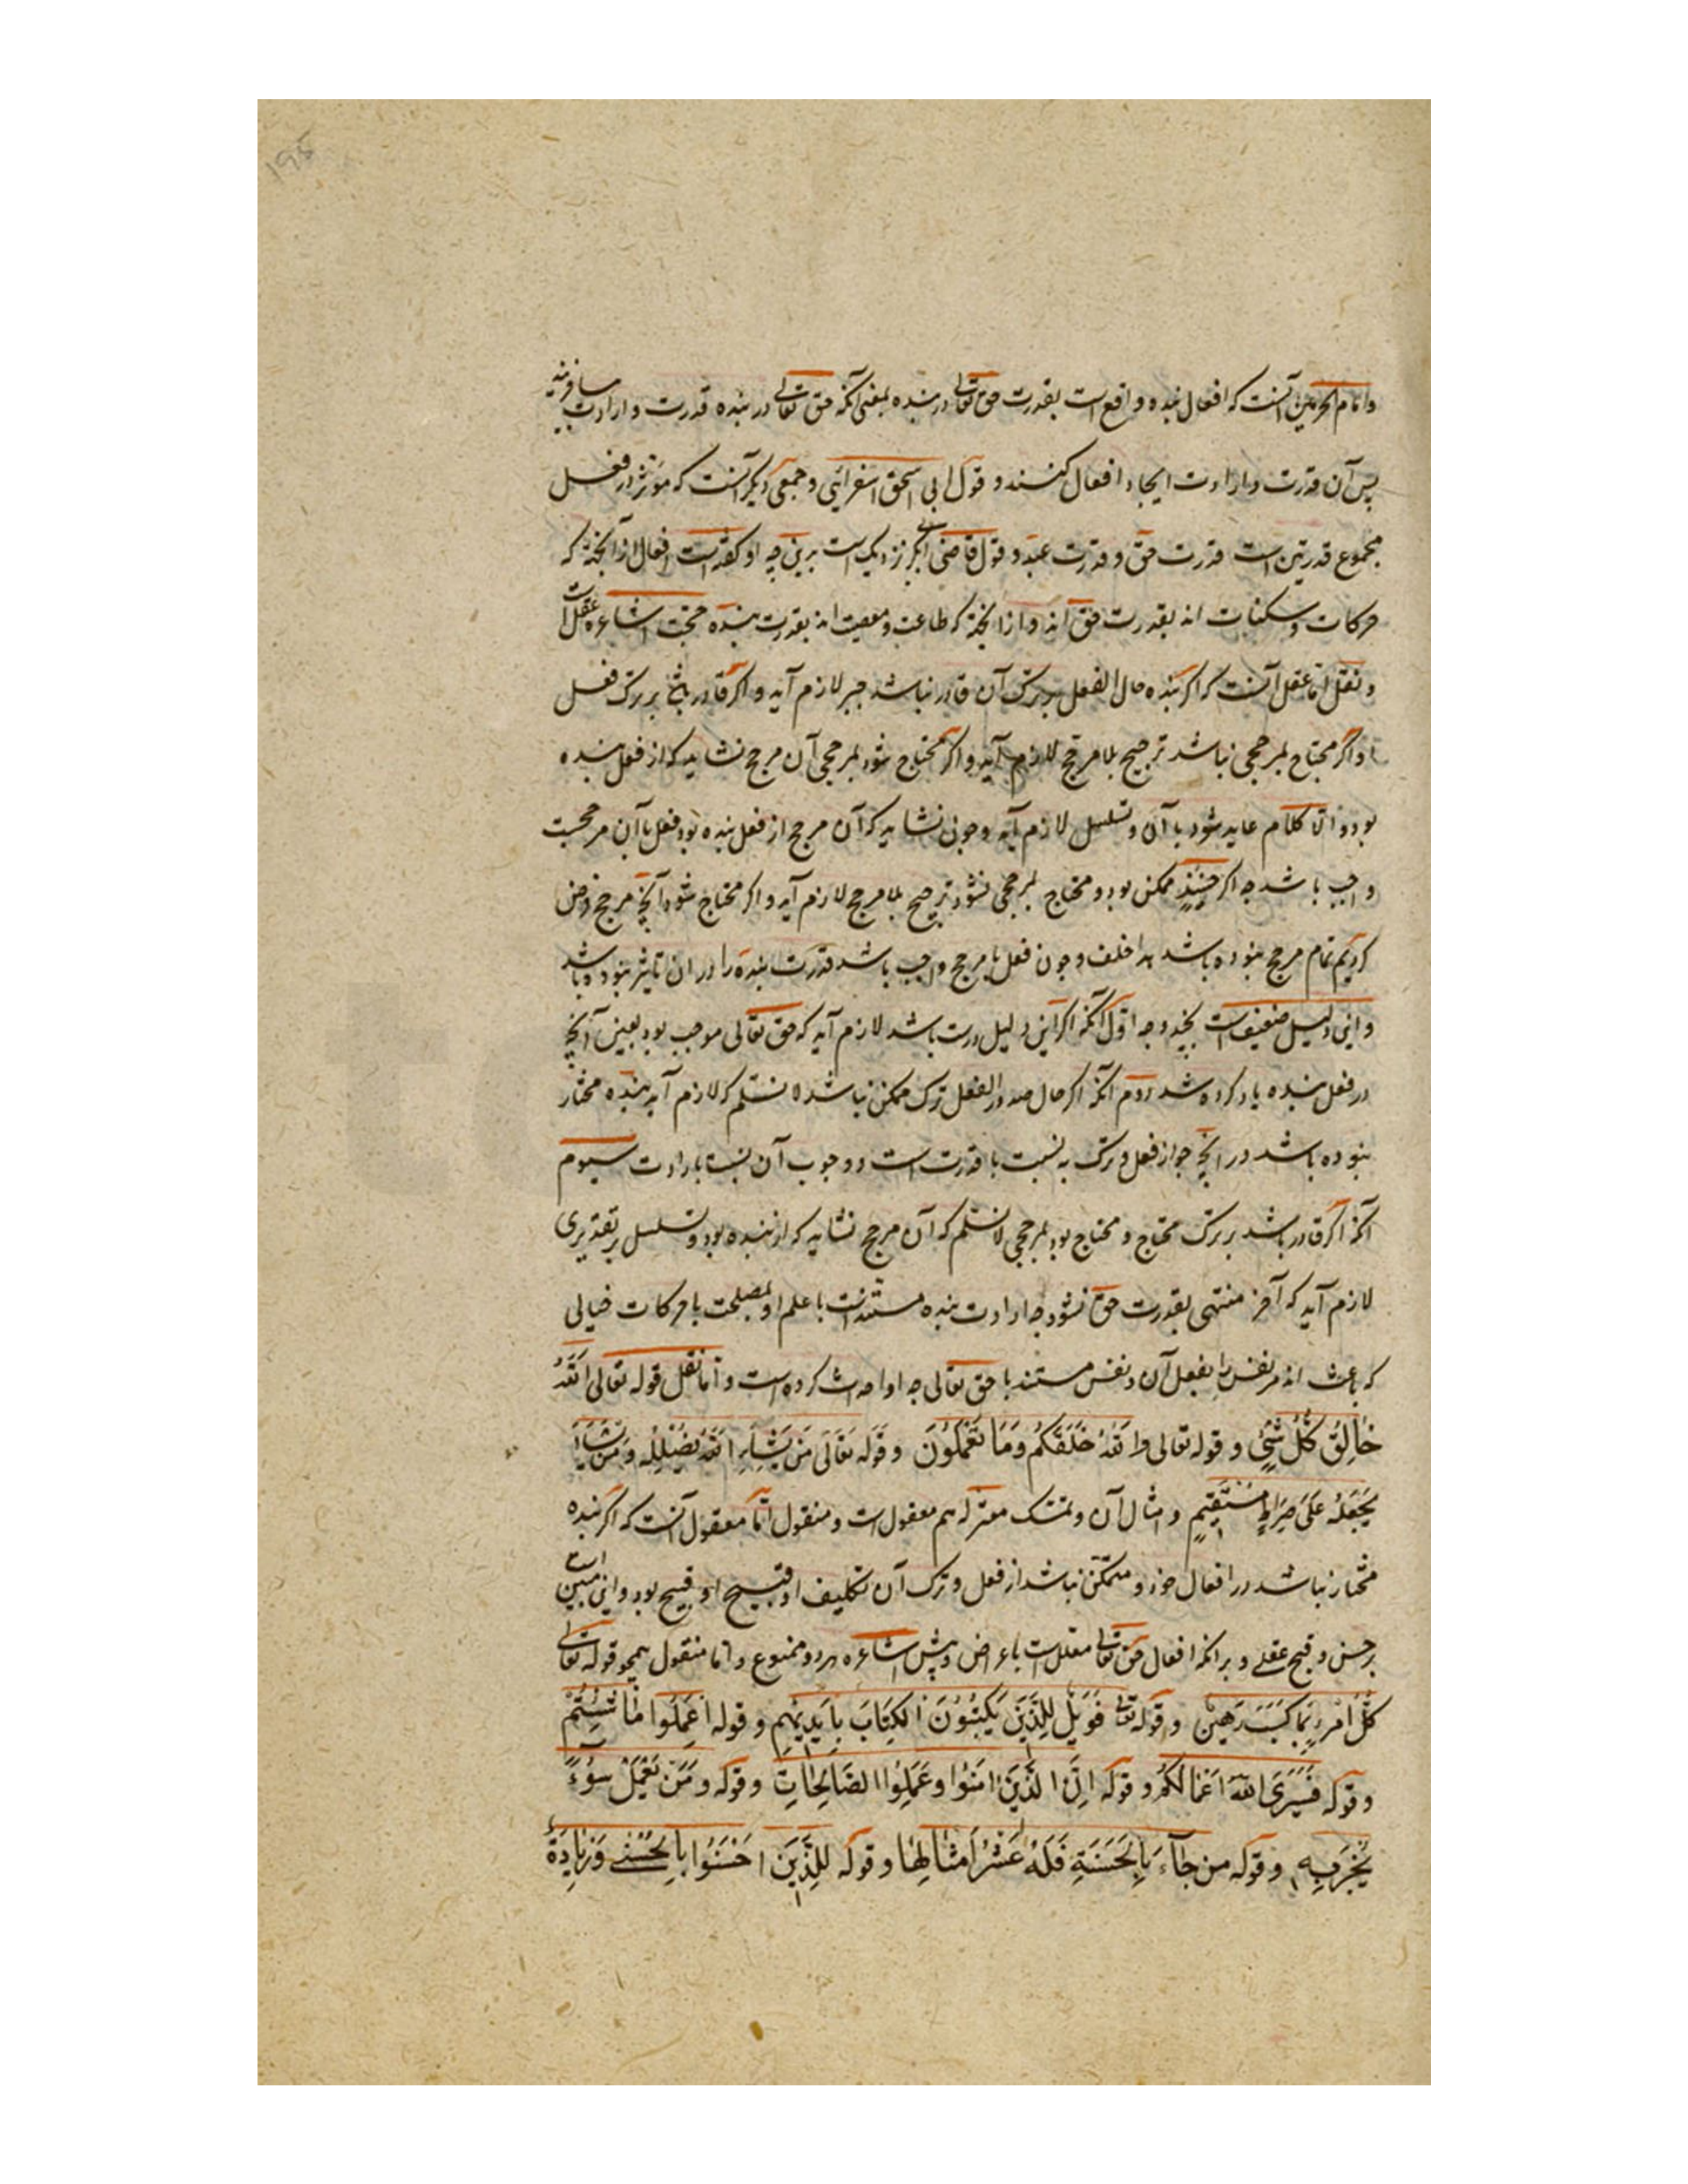 وامام الحرمین آنست که افعال بنده واقع است بقدرت حق تعالی در بنده بمعنی آنکه حق تعالی در بنده قدرت و ارادت میافریند
پس آن قدرت و ارادت ایجاد افعال کنند و قول ابی اسحق اسفرائینی و جمعی دیگر آنست که موثر در فعل
مجموع قدرتین است قدرت حق و قدرت عبد و قول قاضی ابی بکر نزدیک است برین چه او گفته است افعال از آنجهة که
حرکات و سکنات اند بقدرت حق اند و از آنجهة که طاعت و معصیت اند بقدرت بنده حجت اشاعره عقل است
و نقل اما عقل آنست که اگر بنده حال الفعل بر ترک آن قادر نباشد جبر لازم آید و اگر قادر باشد بر ترک فعل
و اگر محتاج بمرجحی نباشد ترجیح بلا مرجح لازم آید و اگر محتاج شود بمرجحی آن مرجح نشاید که از فعل بنده
بود و الا کلام عاید شود با آن و تسلسل لازم آید و چون نشاید که آن مرجح از فعل بنده بود فعل با آن مرجحیت
واجب باشد چه اگر حینئذ ممکن بود و محتاج بمرجحی نشود ترجیح بلا مرجح لازم آید و اگر محتاج شود آنچه مرجح فرض
کردیم تمام مرجح نبوده باشد هذا خلف و چون فعل با مرجح واجب باشد قدرت بنده را در آن تاثیر نبوده باشد
و این دلیل ضعیف است بچند وجه اول آنکه اگر این دلیل درست باشد لازم آید که حق تعالی موجب بود بعین آنچه
در فعل بنده یاد کرده شد دوم آنکه اگر حال صدور الفعل ترک ممکن نباشد لا نسلم که لازم آید بنده مختار
نبوده باشد در آنچه جواز فعل و ترک به نسبت با قدرت است و وجوب آن نسبة با ارادت سیوم
آنکه اگر قادر باشد بر ترک محتاج و محتاج بود بمرجحی لا نسلم که آن مرجح نشاید که از بنده بود و تسلسل بر تقدیری
لازم آید که آخر منتهی بقدرت حق نشود چه ارادت بنده مستندست با علم او بمصلحت یا حرکات خیالی
که باعث اند مر نفس را بفعل آن و نفس مستند با حق تعالی چه او احداث کرده است و اما نقل قوله تعالی الله
خالِقُ کُلِّ شَیْءٍ و قوله تعالی والله خَلَقَکُم وَمَا تَعْمَلُونَ وَ قَوله تعالَی مَن یَشَأِ اللهُ یُضْلِلْهُ وَمَن یَشَأْ
یَجْعَلْهُ عَلَی صِرَاطٍ مُسْتَقِیمٍ و امثال آن و تمسک معتزله هم معقول است و منقول اما معقول آنست که اگر بنده
مختار نباشد در افعال خود و متمکن نباشد از فعل و ترک آن تکلیف او قبیح بود و این مبنی است
بر حسن و قبح عقلی و بر آنکه افعال حق تعالی معلل است باغراض و پیش اشاعره هر دو ممنوع و اما منقول همچو قوله تعالی
کُلُّ امْرِئٍ بِمَا کَسَبَ رَهِینٌ و قوله تعالی فَوَیْلٌ لِلَّذِینَ یَکْتُبُونَ الْکِتَابَ بِأَیْدِیهِمْ و قوله اعْمَلُوا مَا شِئْتُمْ
و قوله فَسَیَرَی اللهُ اَعْمَالَکُمْ و قوله اِنَّ الَّذِینَ امَنُوا وَعَمِلُوا الصَّالِحَاتِ و قوله وَمَنْ یَعْمَلْ سُوءً
یُجْزَ بِهِ و قوله من جَآءَ بِالْحَسَنَةِ فَلَهُ عَشْرُ اَمْثَالِهَا و قوله لِلَّذِینَ اَحْسَنُوا بِالْحُسْنَی وَزِیَادَةٌ